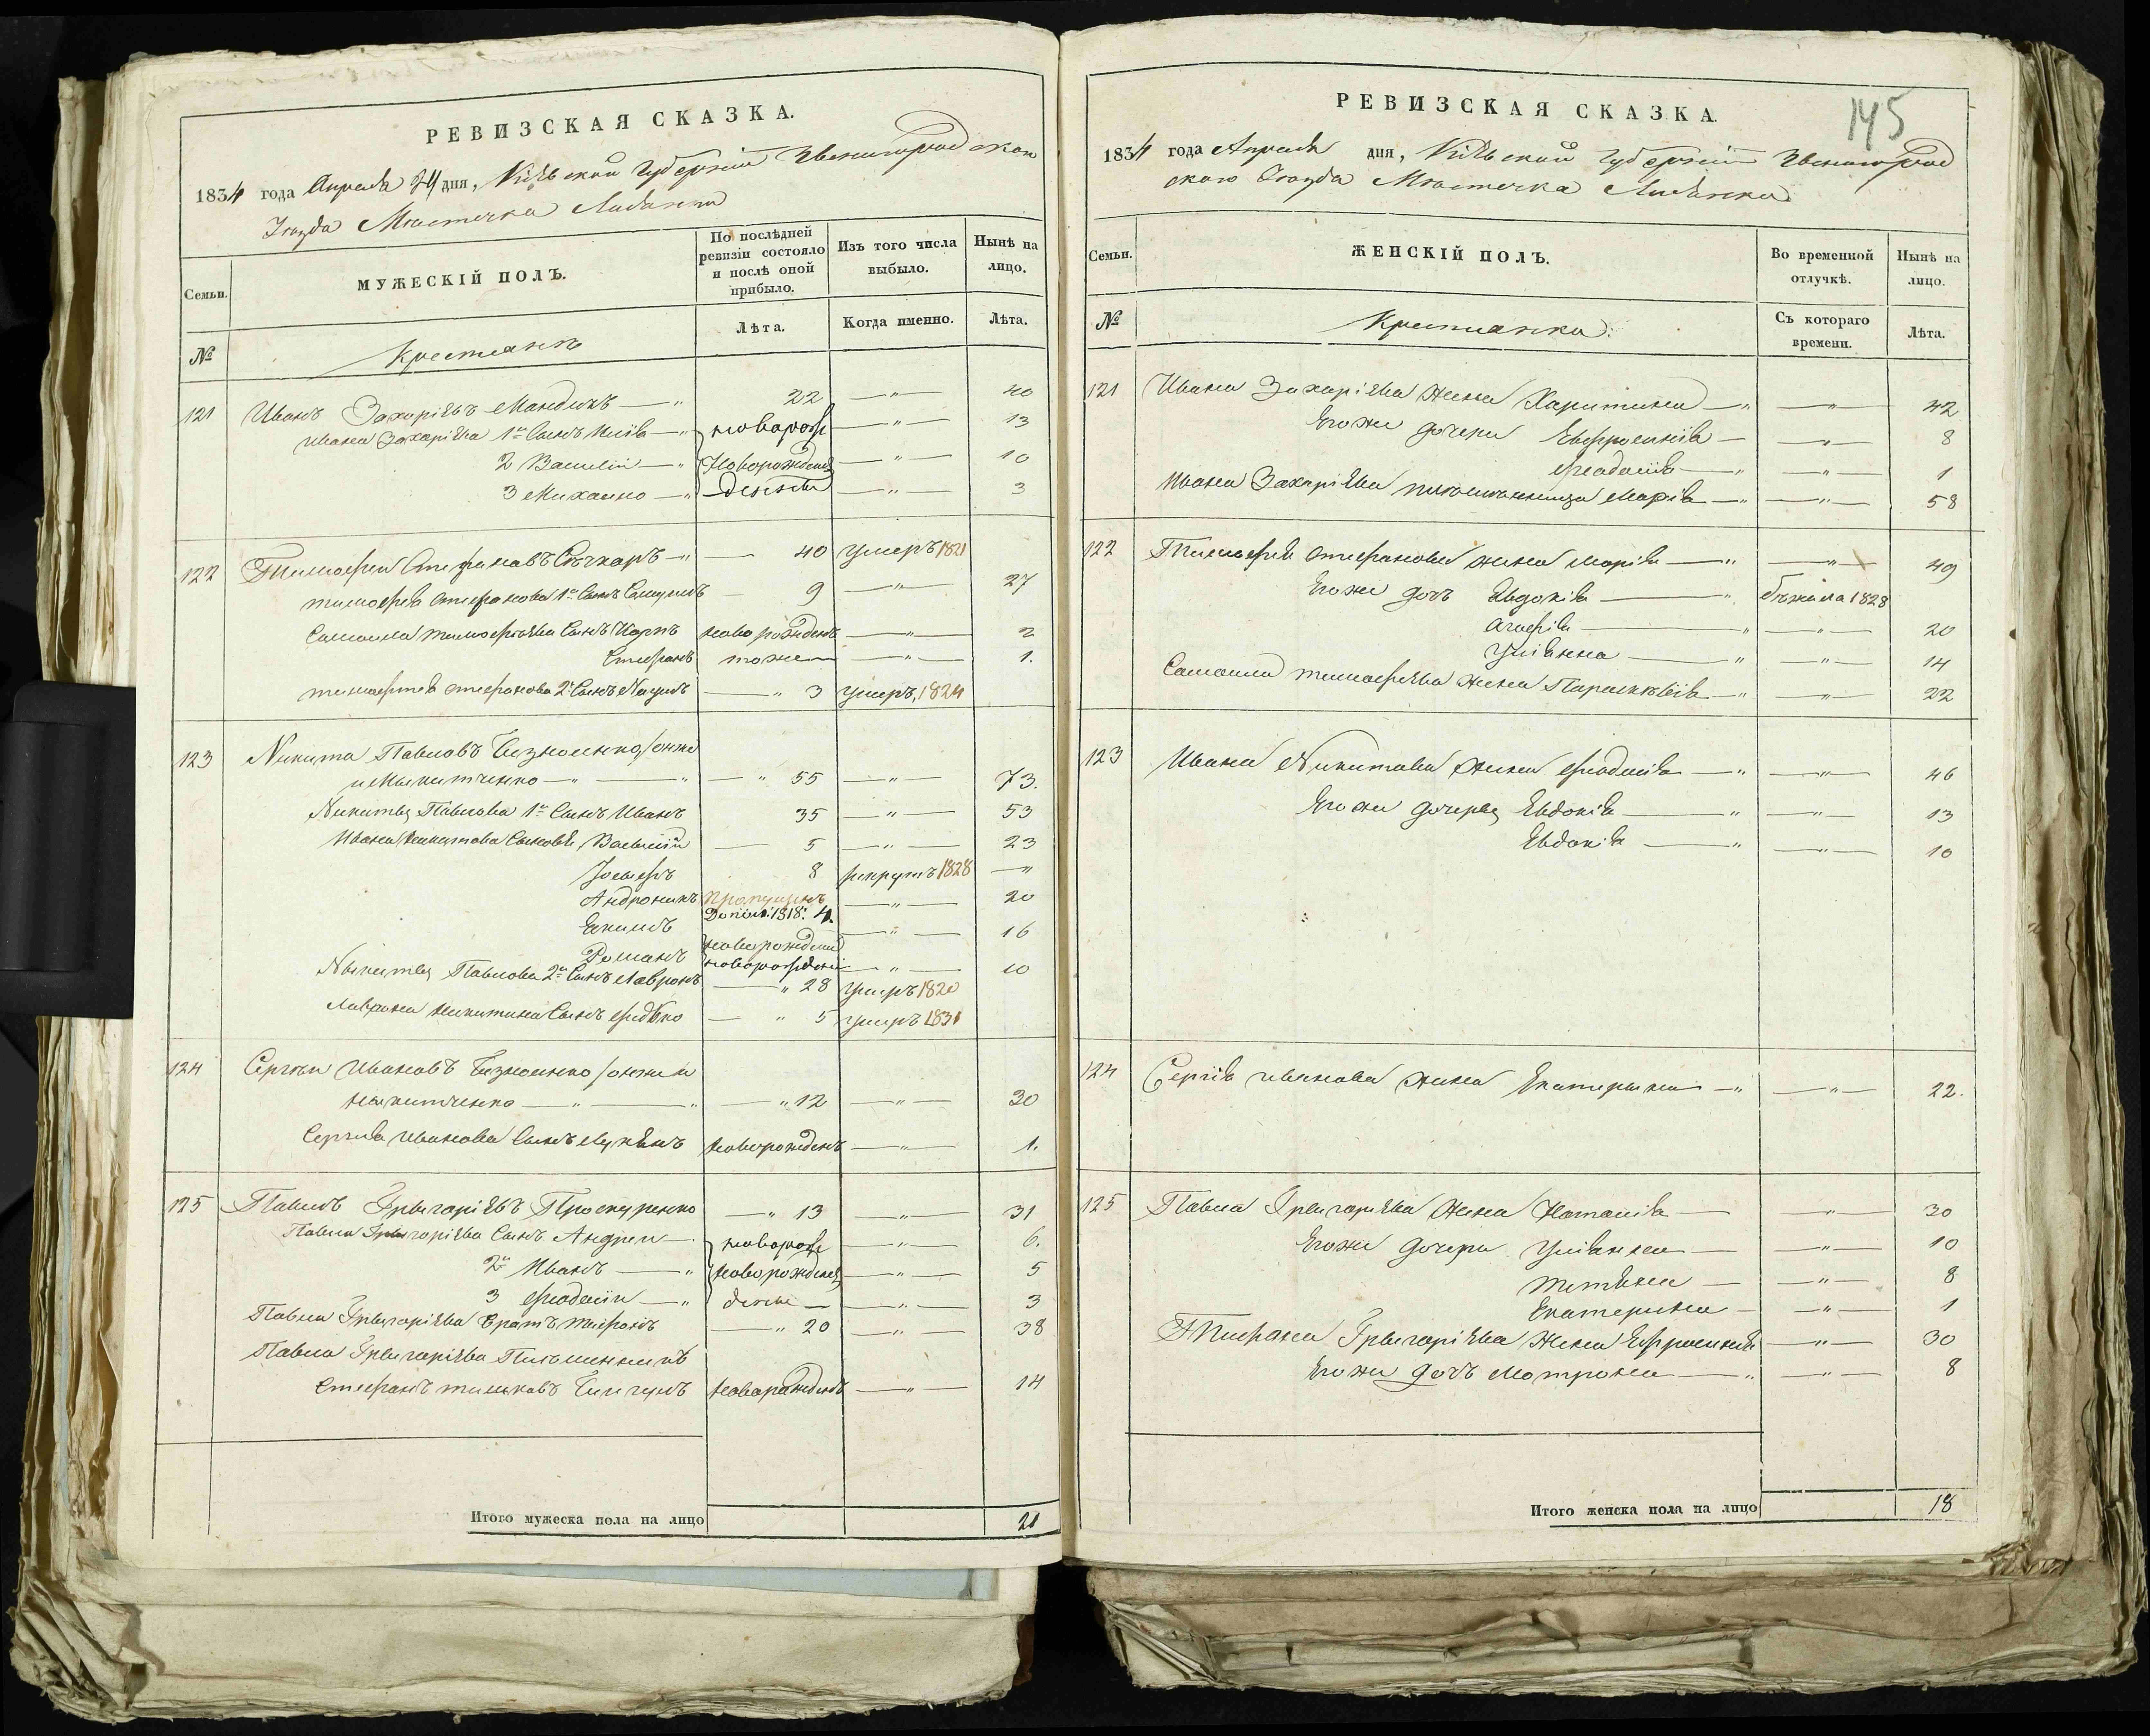 РЕВИЗСКАЯ СКАЗКА.
1834 года Апреля 24 дня, Кіевской Губерніи Звенигородскаго
Уезда Местечка Лисянки
Семьи.
МУЖЕСКІЙ ПОЛЪ.
По послѣдней ревизіи состояло и послѣ оной прибыло.
Изъ того числа выбыло.
Нынѣ на лицо.
№
Крестьянъ
Лѣта.
Когда именно.
Лѣта.
121 Иванъ Захаріевъ 22 — " — 40
Ивана Захаріева 1й Сынъ новорож — " — 13
2 Василій — " Новорожденъ — " — 10
3 Михайло — " — " — 3
122 Тимофей Стефановъ — " — 40 умеръ 1821
тимофея Стефанова 1й Сынъ 9 — " — 27
тимофеева Сынъ Карпъ новорожденъ — " — 2
Стефанъ тоже — " — 1.
тимофея Стефанова 2й Сынъ Наумъ — " 3 умеръ, 1824
123 Никита Павловъ онже
и Мыкитченко — " — " — " 55 — " — 73.
Никиты Павлова 1й Сынъ Иванъ 35 — " — 53
Ивана Никитова Сыновья Василій 5 — " — 23
Іосифъ 8 рекрутъ 1828 — "
Андроникъ Пропущенъ — " — 20
1818: 4.
Екимъ новорожденъ — " — 16
Романъ новорожденъ — " — 10
Никиты Павлова 2й Сынъ Лавронъ — " 28 умеръ 1820
Лаврона Никитина Сынъ — " 5 умеръ 1831
124 Сергей Ивановъ онже и
Никитченко — " — " — " 12 — " — 30
Сергия Иванова Сынъ Лукянъ новорожденъ — " — 1.
125 Павелъ Григоріевъ Проскуренко — " 13 — " — 31
Павла Григоріева Сынъ Андрей — новорож — " — 6.
2й Иванъ — " новорожденъ — " — 5
3 Феодосій — " — " — 3
Павла Григоріева братъ — " 20 — " — 38
Павла Григоріева Племянникъ
Стефанъ новорожденъ — " — 14
Итого мужеска пола на лицо 21
145
РЕВИЗСКАЯ СКАЗКА.
1834 года Апреля дня, Кіевской Губерніи Звенигород
скаго Уезда Местечка Лисянки
Семьи.
ЖЕНСКІЙ ПОЛЪ.
Во временной отлучкѣ.
Нынѣ на лицо.
№
Крестьянки.
Съ котораго времени.
Лѣта.
121 Ивана Захаріева жена Харитина — " — " — 42
Егоже дочери Евфросинія — — " — 8
Феодосія — " — " — 1
Ивана Захаріева племянница Марія — " — " — 58
122 Тимофея Стефанова жена Марія — " — " — 49
Егоже дочь Евдокія — " бежала 1828
Агафія — " — " — 20
Уліанна — " — " — 14
тимофеева жена Параскевія — " — " — 22
123 Ивана Никитова жена Феодосія — " — " — 46
Егоже дочери Евдокія — " — " — 13
Евдокія — " — " — 10
124 Сергія Иванова жена Екатерина — " — " — 22.
125 Павла Григоріева жена Наталія — — " — 30
Егоже дочери Уліанна — — " — 10
Тетяна — — " — 8
Екатерина — — " — 1
Григоріева Жена Ефросинія — " — 30
Егоже дочь Мотрона — " — " — 8
Итого женска пола на лицо 18